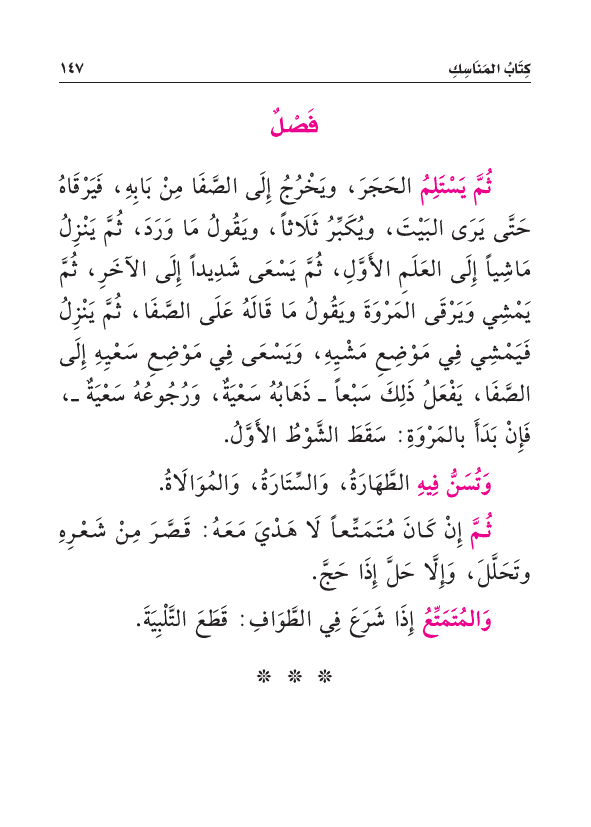 كِتَابُ المَنَاسِكِ ١٤٧
فَصْلٌ
ثُمَّ يَسْتَلِمُ الحَجَرَ، ويَخْرُجُ إِلَى الصَّفَا مِنْ بَابِهِ، فَيَرْقَاهُ
حَتَّى يَرَى البَيْتَ، ويُكَبِّرُ ثَلَاثاً، ويَقُولُ مَا وَرَدَ، ثُمَّ يَنْزِلُ
مَاشِياً إِلَى العَلَمِ الأَوَّلِ، ثُمَّ يَسْعَى شَدِيداً إِلَى الآخَرِ، ثُمَّ
يَمْشِي وَيَرْقَى المَرْوَةَ ويَقُولُ مَا قَالَهُ عَلَى الصَّفَا، ثُمَّ يَنْزِلُ
فَيَمْشِي فِي مَوْضِعِ مَشْيِهِ، وَيَسْعَى فِي مَوْضِعِ سَعْيِهِ إِلَى
الصَّفَا، يَفْعَلُ ذَلِكَ سَبْعاً ـ ذَهَابُهُ سَعْيَةٌ، وَرُجُوعُهُ سَعْيَةٌ ـ،
فَإِنْ بَدَأَ بالمَرْوَةِ: سَقَطَ الشَّوْطُ الأَوَّلُ.
وَتُسَنُّ فِيهِ الطَّهَارَةُ، وَالسِّتَارَةُ، وَالمُوَالَاةُ.
ثُمَّ إِنْ كَانَ مُتَمَتِّعاً لَا هَدْيَ مَعَهُ: قَصَّرَ مِنْ شَعْرِهِ
وتَحَلَّلَ، وَإِلَّا حَلَّ إِذَا حَجَّ.
وَالمُتَمَتِّعُ إِذَا شَرَعَ فِي الطَّوَافِ: قَطَعَ التَّلْبِيَةَ.
* * *